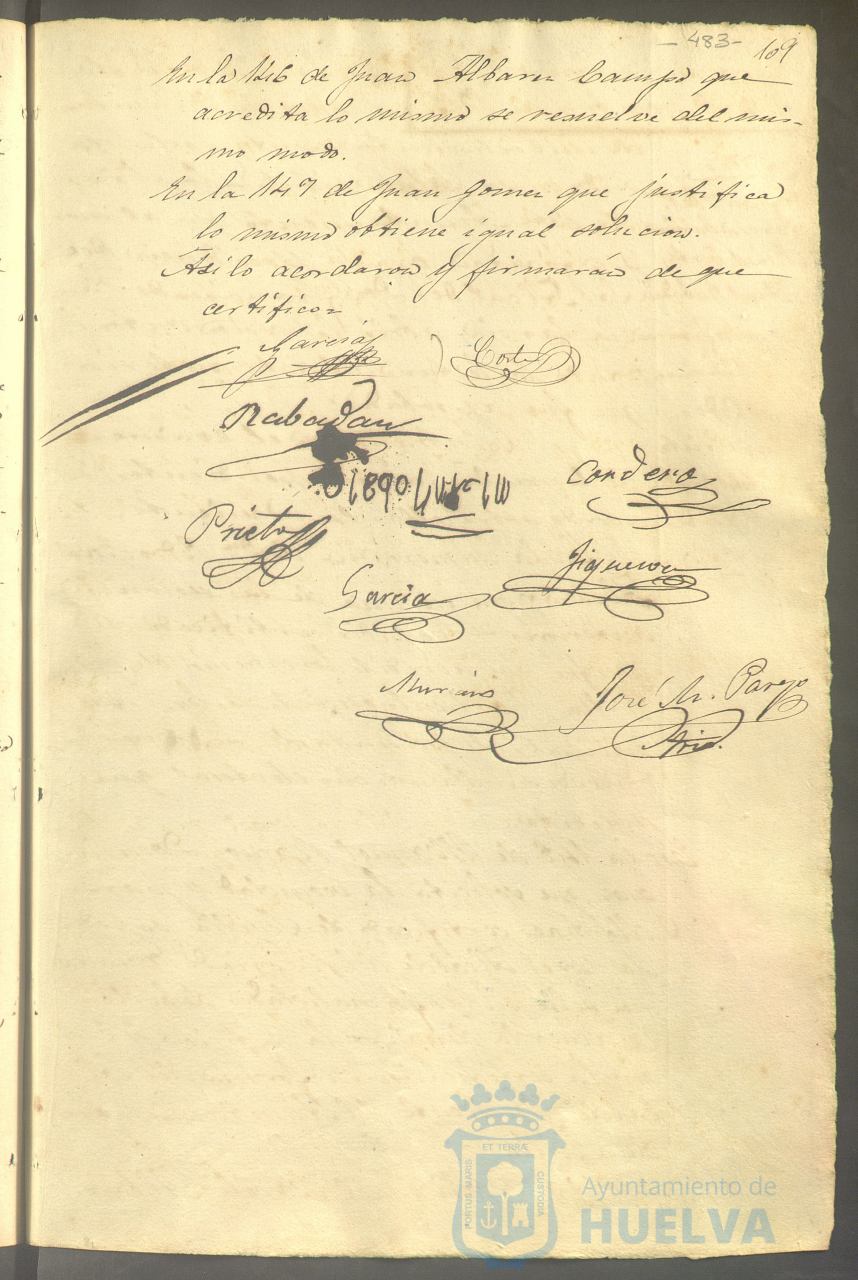 - 483 -
109
En la 146 de Juan Albarez Campos que
acredita lo mismo se resuelve del mis-
mo modo.
En la 147 de Juan Gomez que justifica
lo mismo obtiene igual solucion.
Asi lo acordaron y firmarán de que
certifico=
Garcia
Corte
Rabadan
Cordero
Prieto
Garcia
José M. Parejo
Srio.
ET TERRÆ
PORTUS MARIS
CUSTODIA
Ayuntamiento de
HUELVA